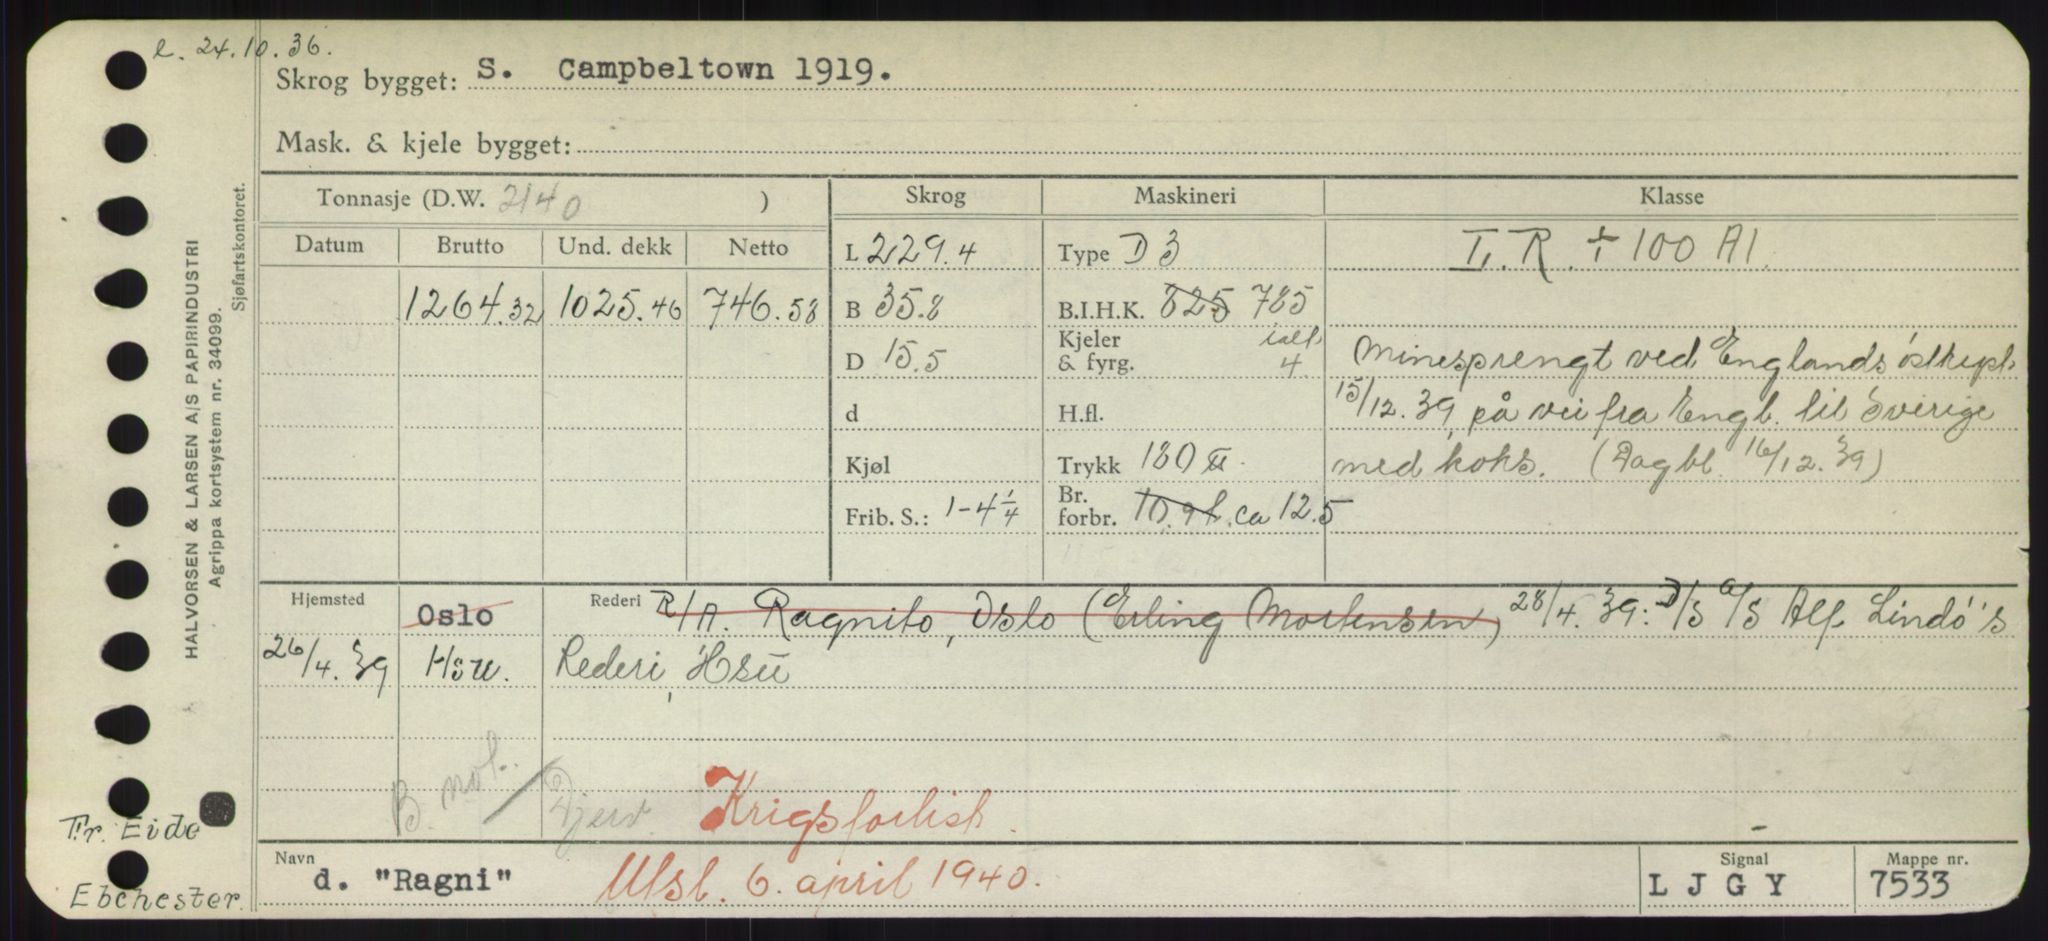 e. 24.10.36.
Skrog bygget: S. Campbeltown 1919.
Mask. & kjele bygget:
Tonnasje (D.W. 2140 )
Skrog
Maskineri
Klasse
Datum
Brutto
Und. dekk
Netto
1264.32
1025.46
746.58
L 229.4
B 35.8
D 15.5
d
Kjøl
Frib. S.: 1-4 1/4
Type D 3
B.I.H.K. 825 785
Kjeler & fyrg. ialt 4
H.fl.
Trykk 180
Br. forbr. ca 12.5
L.R. + 100 A1.
Minesprengt ved Englands østkyst
15/12.39, på vei fra Engl. til Sverige
med koks. (Dagbl. 16/12.39)
Hjemsted
Oslo
26/4.39 Hsu.
Rederi R/A. Ragnito, Oslo (Erling Mortensen) 28/4.39: D/S A/S Alf Lindø's
Rederi, Hsu
B. not. / Djerv.
Krigsforlist.
Navn
d. "Ragni"
Utsl. 6. april 1940.
Signal
LJGY
Mappe nr.
7533
HALVORSEN & LARSEN A/S PAPIRINDUSTRI
Agrippa kortsystem nr. 34099.
Sjøfartskontoret.
Fr. Eide
Ebchester.